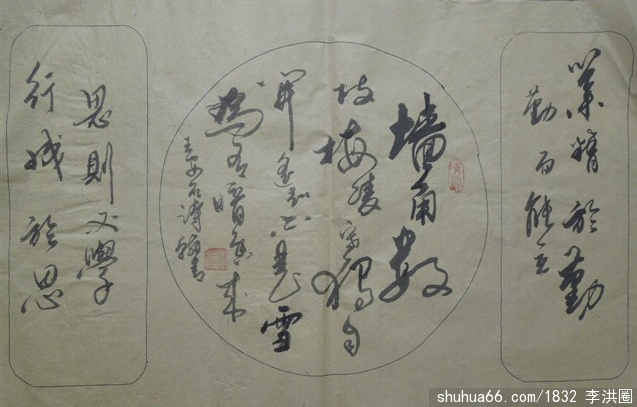 業精於勤
勤而能立
墙角数
枝梅凌寒独自
開遥知不是雪
為有暗香来
王安石诗
思則必學
行成於思
shuhua66.com/1832 李洪圈